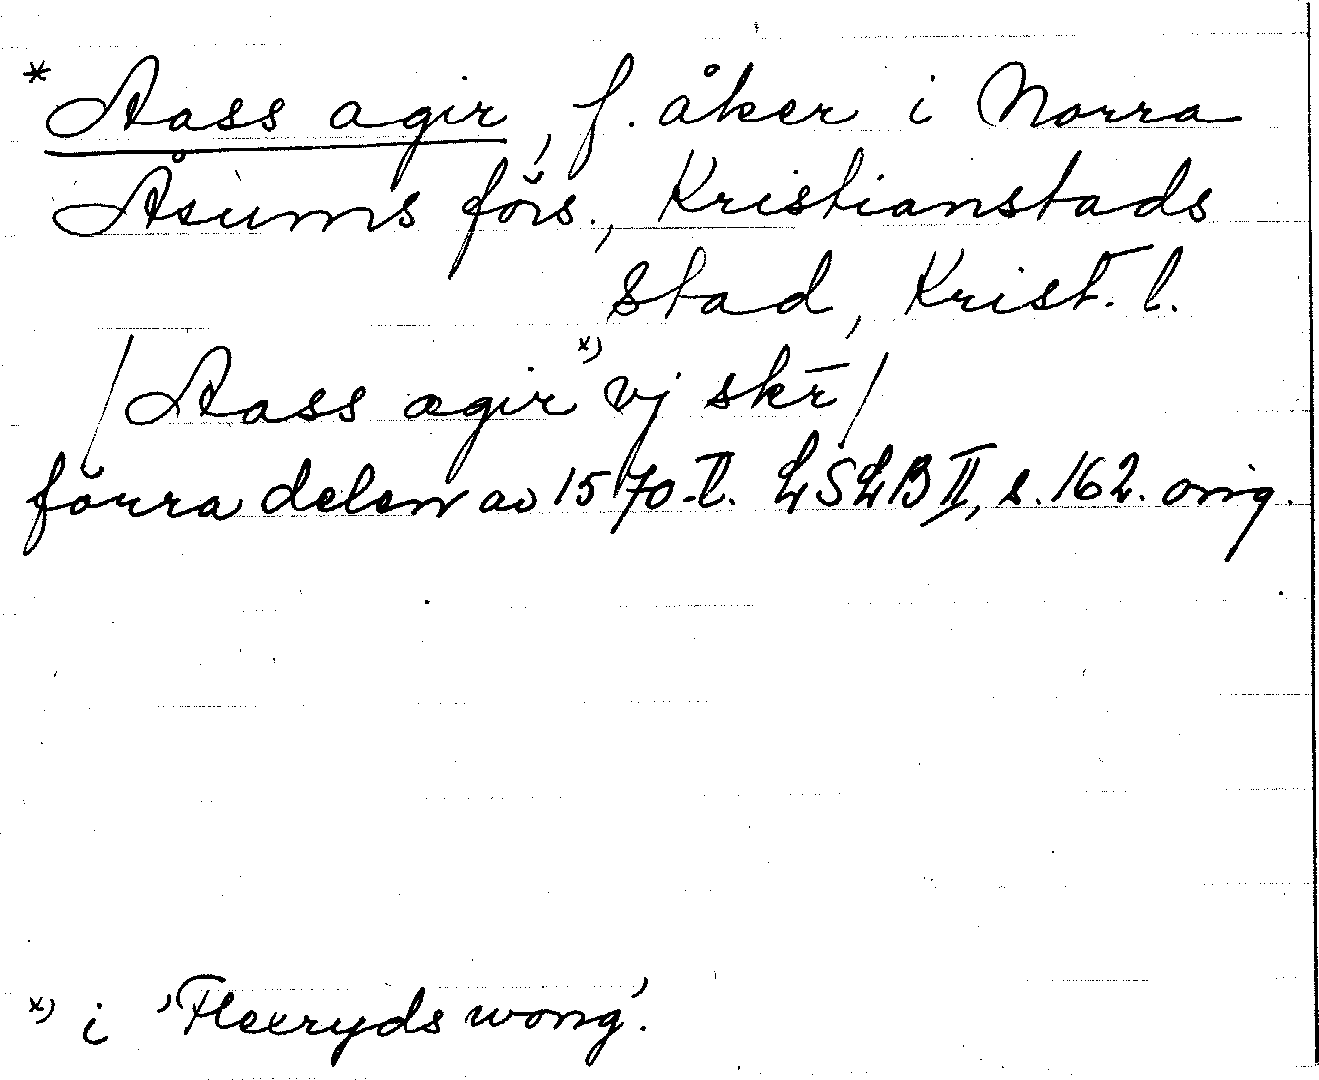 * Aass agir, f. åker i Norra
Åsums förs., Kristianstads
stad, Krist. l.
/Aass agir x) vj skr̄/
förra delen av 1570-t. LSLB II, s. 162. orig.
x) i 'Flexryds wong'.